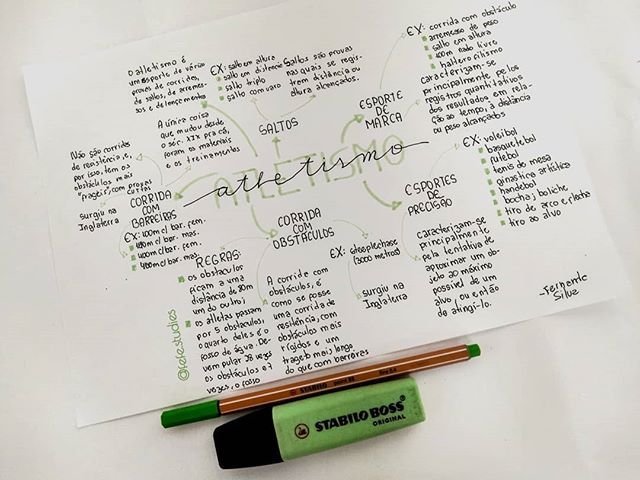 O atletismo é
um esporte de várias
provas de corridas,
de saltos, de arremes-
sos e de lançamentos
EX: salto em altura
salto em distância
salto triplo
salto com vara
Saltos são provas
nas quais se regis-
tram distância ou
altura alcançados.
EX: corrida com obstáculo
arremesso de peso
salto em altura
400m nado livre
halterofilismo
caracterizam-se
principalmente pelos
registros quantitativos
dos resultados em rela-
ção ao tempo, à distância
ou pesos alcançados
A única coisa
que mudou desde
o séc. XIX pra cá,
foram os materiais
e os treinamentos
SALTOS
ESPORTE
DE
MARCA
Não são corridas
de resistência e,
por isso, tem os
obstáculos mais
"frágeis", com provas
curtas
surgiu na
Inglaterra
CORRIDA
COM
BARREIRAS
ATLETISMO
atletismo
EX: 100m c/ bar. fem.
110m c/ bar. mas.
400m c/ bar. fem.
400m c/ bar. mas.
ESPORTES
DE
PRECISÃO
EX: voleibol
basquetebol
futebol
tenis de mesa
ginástica artística
handebol
bocha, boliche
tiro de arco e flecha
tiro ao alvo
CORRIDA
COM
OBSTÁCULOS
REGRAS:
os obstáculos
ficam a uma
distância de
um do outro;
os atletas passam
por 5 obstáculos,
o quarto deles é o
fosso de água. De-
vem pular 28 vezes
os obstáculos e 7
vezes, o fosso
A corrida com
obstáculos, é
como se fosse
uma corrida de
resistência, com
obstáculos mais
rígidos e um
trajeto mais longo
do que com barreiras
EX: steeplechase
(3000 metros)
surgiu na
Inglaterra
caracterizam-se
principalmente
pela tentativa de
aproximar um ob-
jeto ao máximo
possível de um
alvo, ou então
de atingi-lo.
-Fernanda
Silva
@fefe.studies
STABILO
point 88
fine 0,4
STABILO BOSS
ORIGINAL